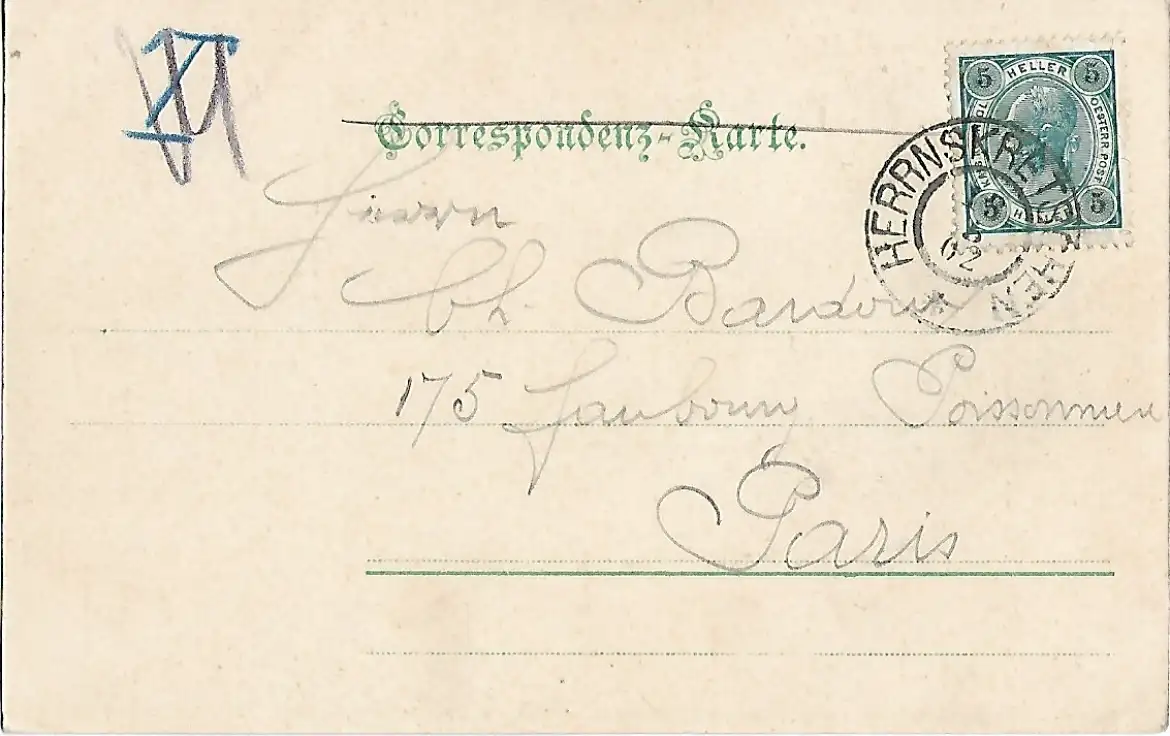 XI
5 HELLER 5
OESTERR. POST
5 HELLER 5
Correspondenz-Karte.
HERRNSKRETSCHEN
02
Herrn
Ch. Bardoux
175 faubourg Poissonniere
Paris